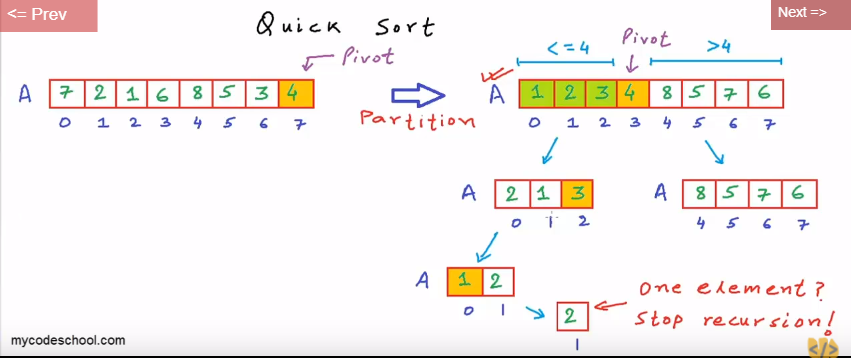 <= Prev
Next =>
Quick Sort
Pivot
<=4
Pivot
>4
A 7 2 1 6 8 5 3 4
0 1 2 3 4 5 6 7
Partition
A 1 2 3 4 8 5 7 6
0 1 2 3 4 5 6 7
A 2 1 3
0 1 2
A 8 5 7 6
4 5 6 7
A 1 2
0 1
2
1
One element?
Stop recursion!
mycodeschool.com
</>